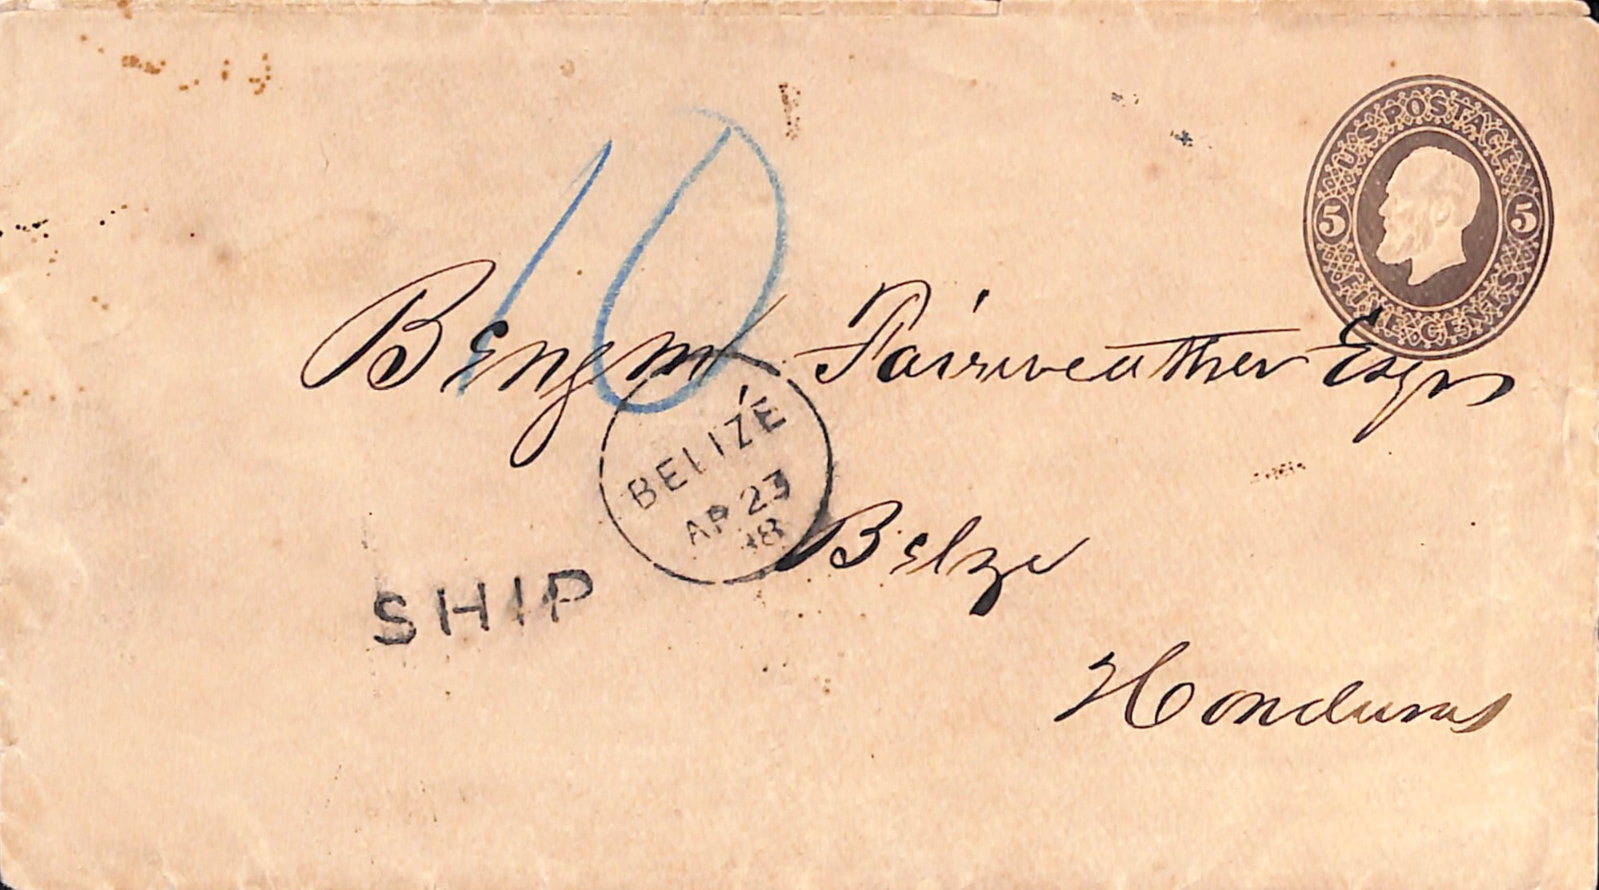 U.S. POSTAGE
5 5
FIVE CENTS
10
Bengm Fairweather Esqr
BELIZE
AP 23
Belze
SHIP
Honduras